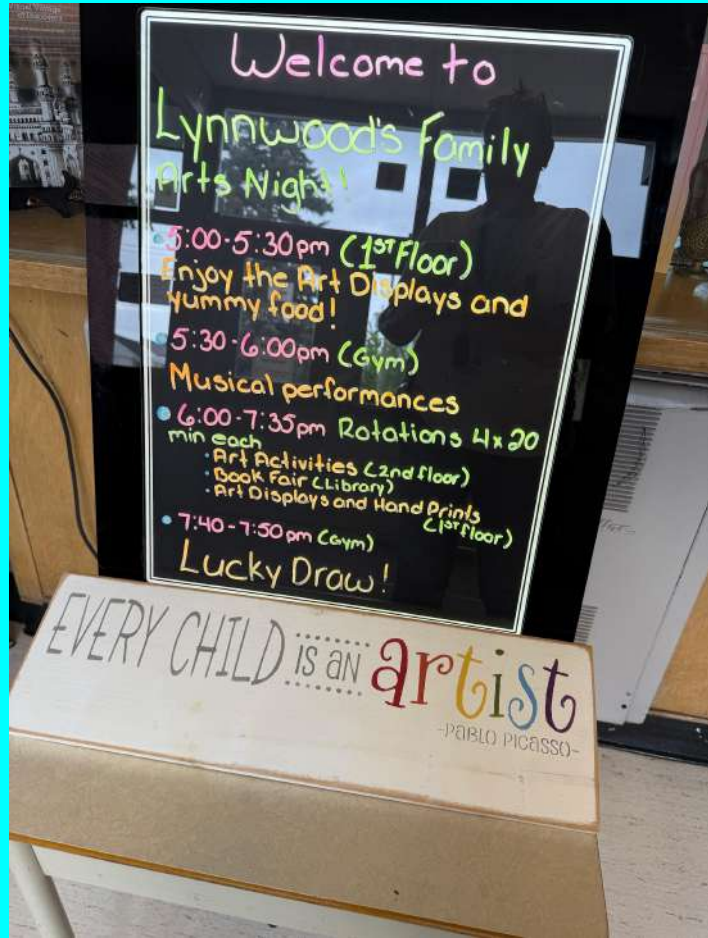 Welcome to
Lynnwood's Family
Arts Night!
• 5:00-5:30pm (1ST Floor)
Enjoy the Art Displays and
yummy food!
• 5:30-6:00pm (Gym)
Musical performances
• 6:00-7:35pm Rotations 4x20
min each
• Art Activities (2nd floor)
• Book Fair (Library)
• Art Displays and Hand Prints
(1ST floor)
• 7:40-7:50pm (Gym)
Lucky Draw!
EVERY CHILD is an artist
-PABLO PICASSO-